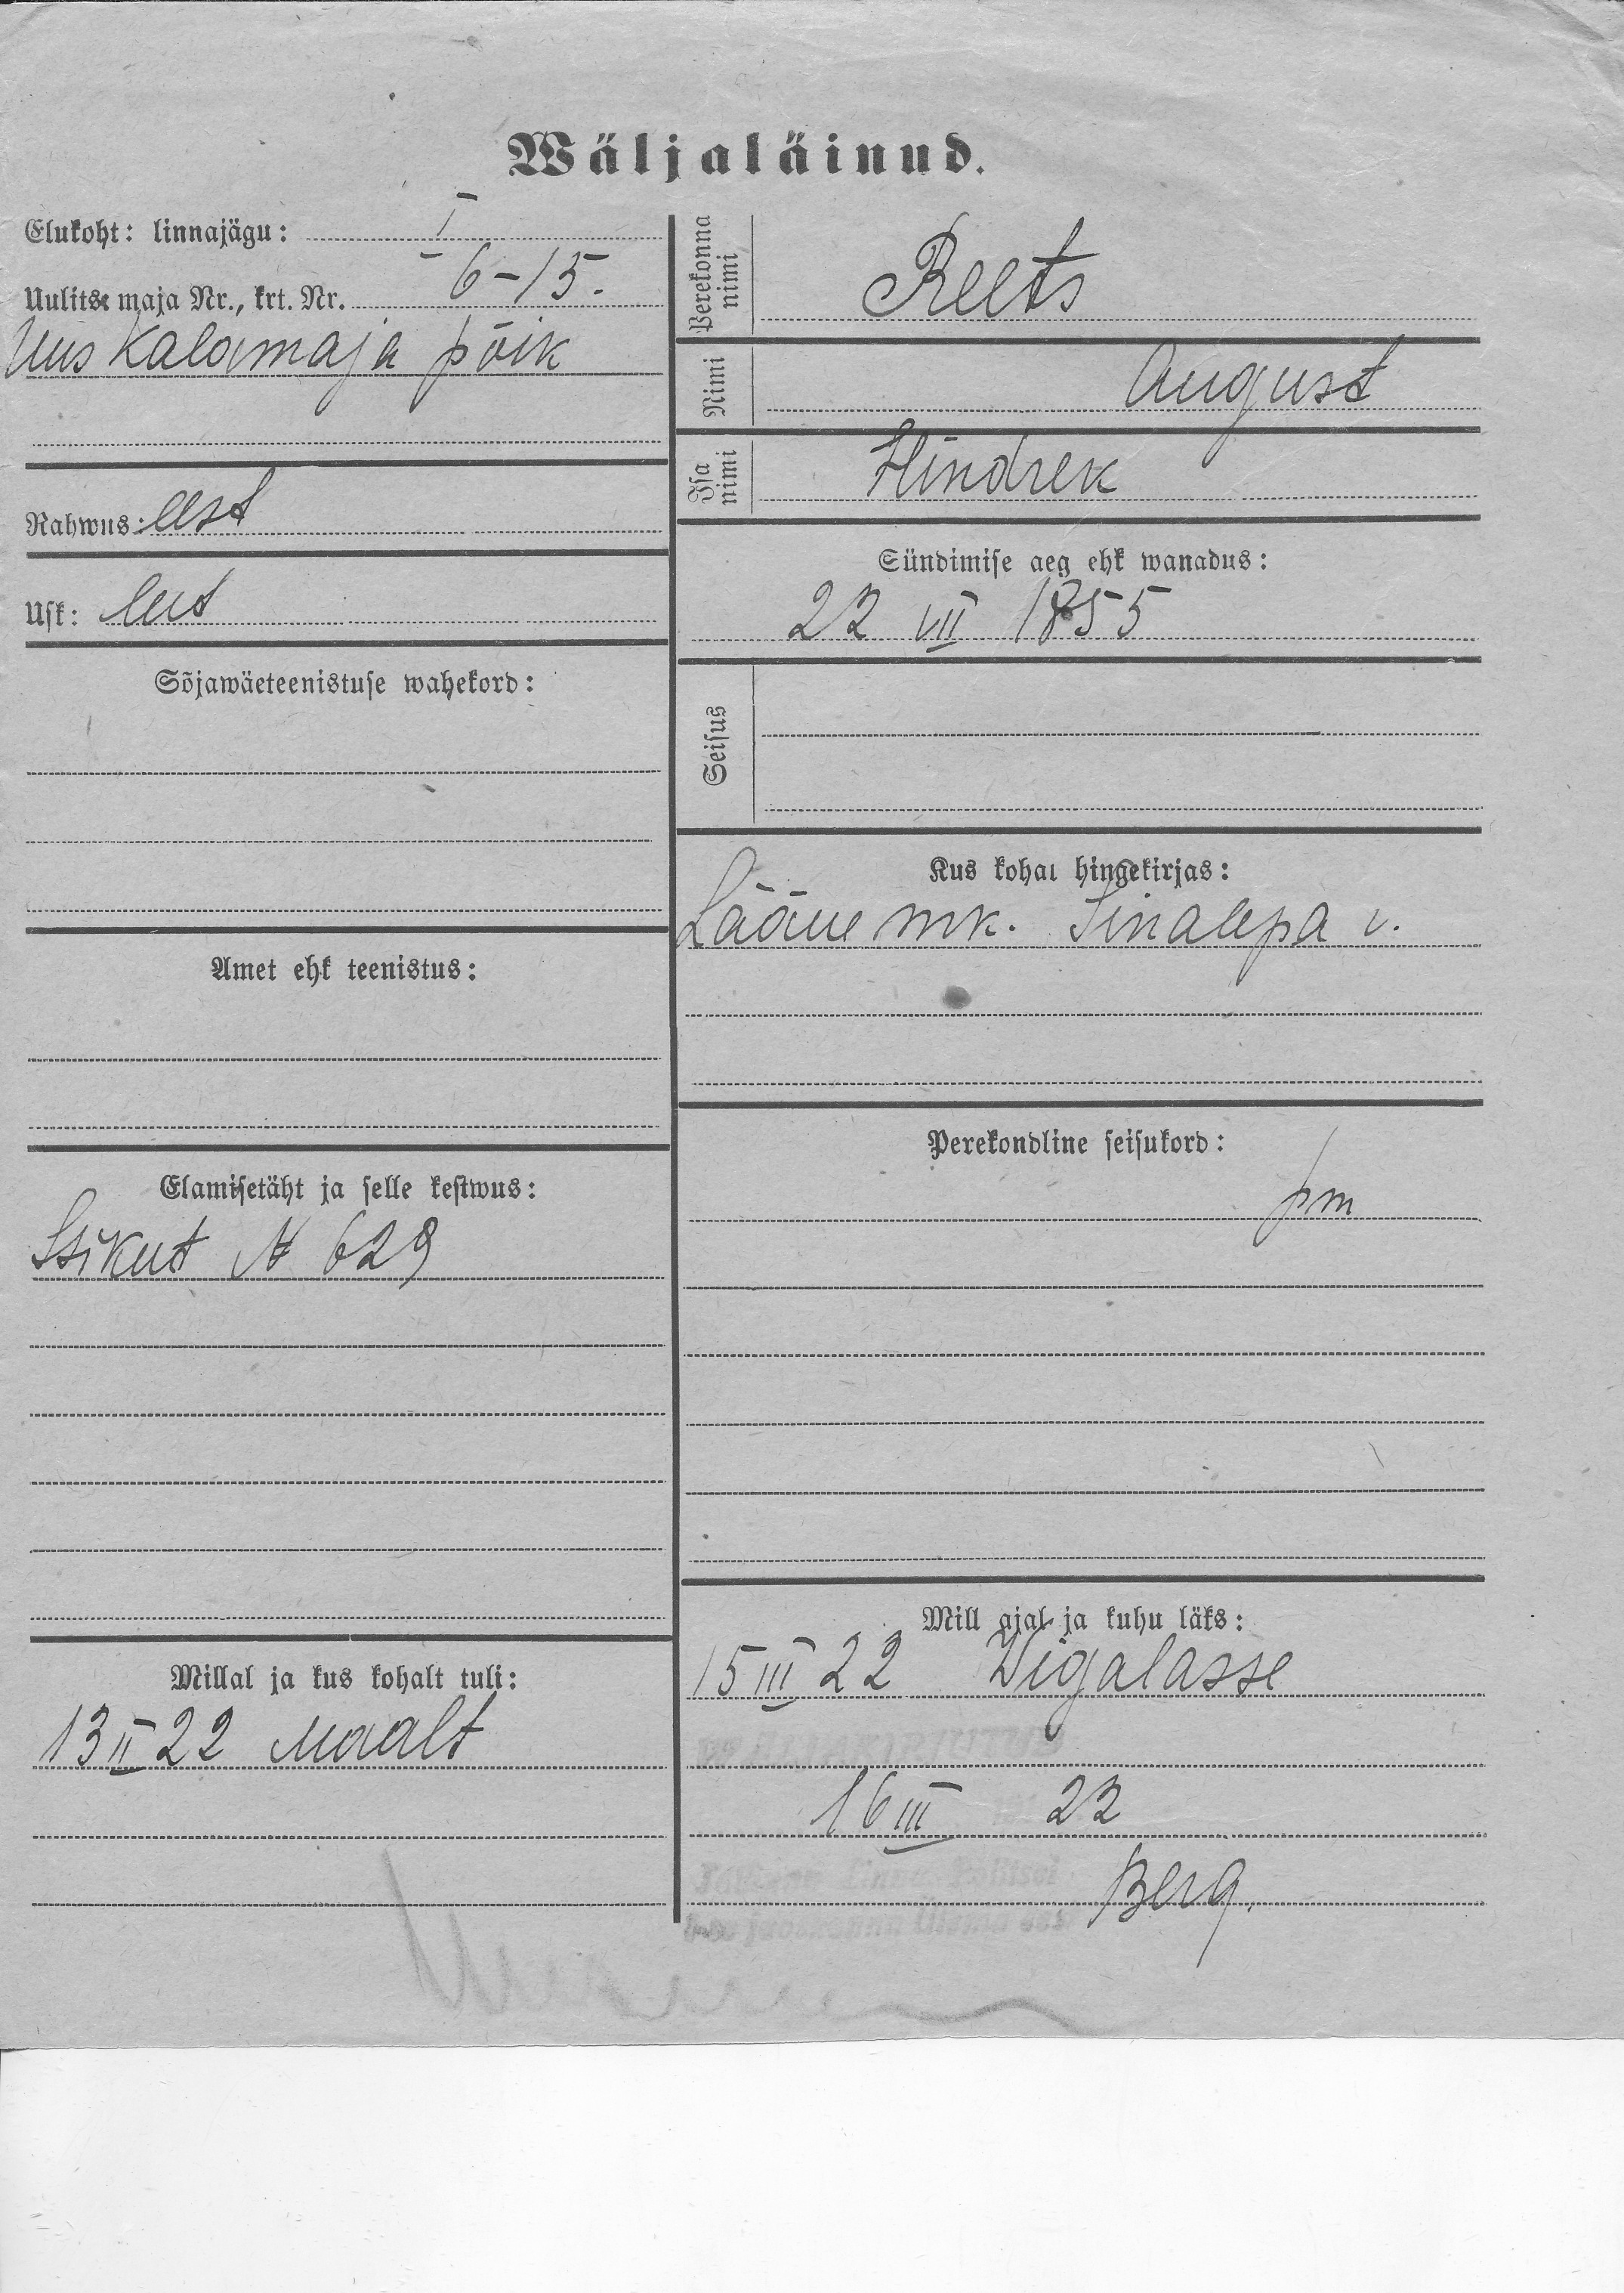 Wäljaläinud.
Elukoht: linnajägu: I
Uulits: maja Nr., krt. Nr. 6-15.
Uus Kalamaja põik
Rahwus: eest
Usk: lut
Sõjawäeteenistuse wahekord:
Amet ehk teenistus:
Elamisetäht ja selle kestwus:
Isikut № 629
Millal ja kus kohalt tuli:
13 II 22 Maalt
Perekonna nimi Reets
Nimi August
Isa nimi Hindrek
Sündimise aeg ehk wanadus:
22 VII 1855
Seisus
Kus kohal hingekirjas:
Lääne mk. Sinalepa v.
Perekondline seisukord:
pm
Mill ajal ja kuhu läks:
15 III 22 Wigalasse
16 III 22
Berg.